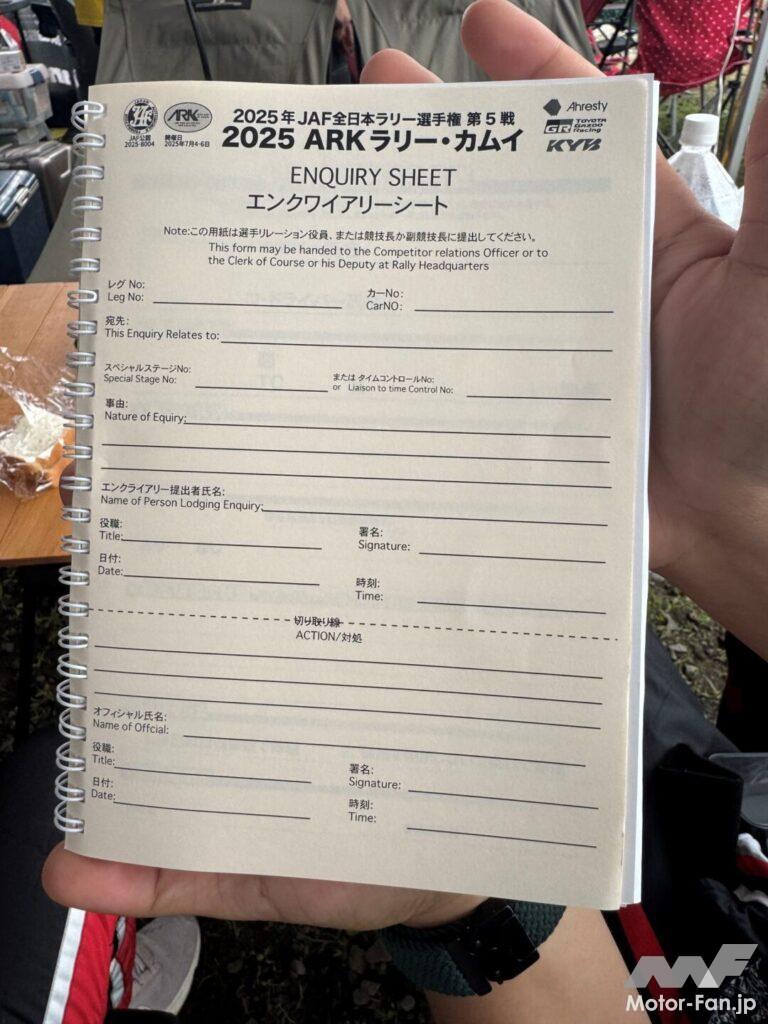 JAF公認
2025-8004
ARK
開催日
2025年7月4-6日
2025年 JAF全日本ラリー選手権 第5戦
2025 ARKラリー・カムイ
Ahresty
GR TOYOTA GAZOO Racing
KYB
ENQUIRY SHEET
エンクワイアリーシート
Note:この用紙は選手リレーション役員、または競技長か副競技長に提出してください。
This form may be handed to the Competitor relations Officer or to
the Clerk of Course or his Deputy at Rally Headquarters
レグ No:
Leg No:
カーNo:
CarNO:
宛先:
This Enquiry Relates to:
スペシャルステージNo:
Special Stage No:
または タイムコントロールNo:
or Liaison to time Control No:
事由:
Nature of Equiry:
エンクライアリー提出者氏名:
Name of Person Lodging Enquiry:
役職:
Title:
署名:
Signature:
日付:
Date:
時刻:
Time:
切り取り線
ACTION/対処
オフィシャル氏名:
Name of Offcial:
役職:
Title:
署名:
Signature:
日付:
Date:
時刻:
Time:
MF
Motor-Fan.jp